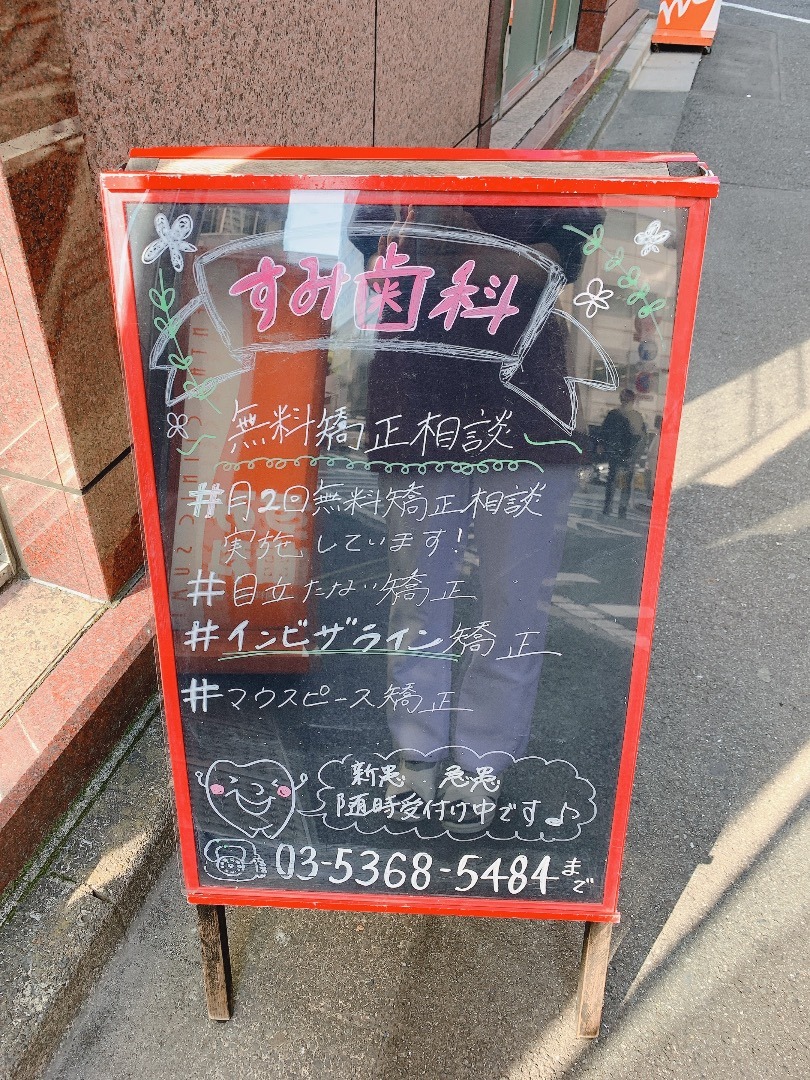 すみ歯科
無料矯正相談
#月2回無料矯正相談
実施しています!
#目立たない矯正
#インビザライン矯正
#マウスピース矯正
新患 急患
随時受付け中です♪
03-5368-5484まで